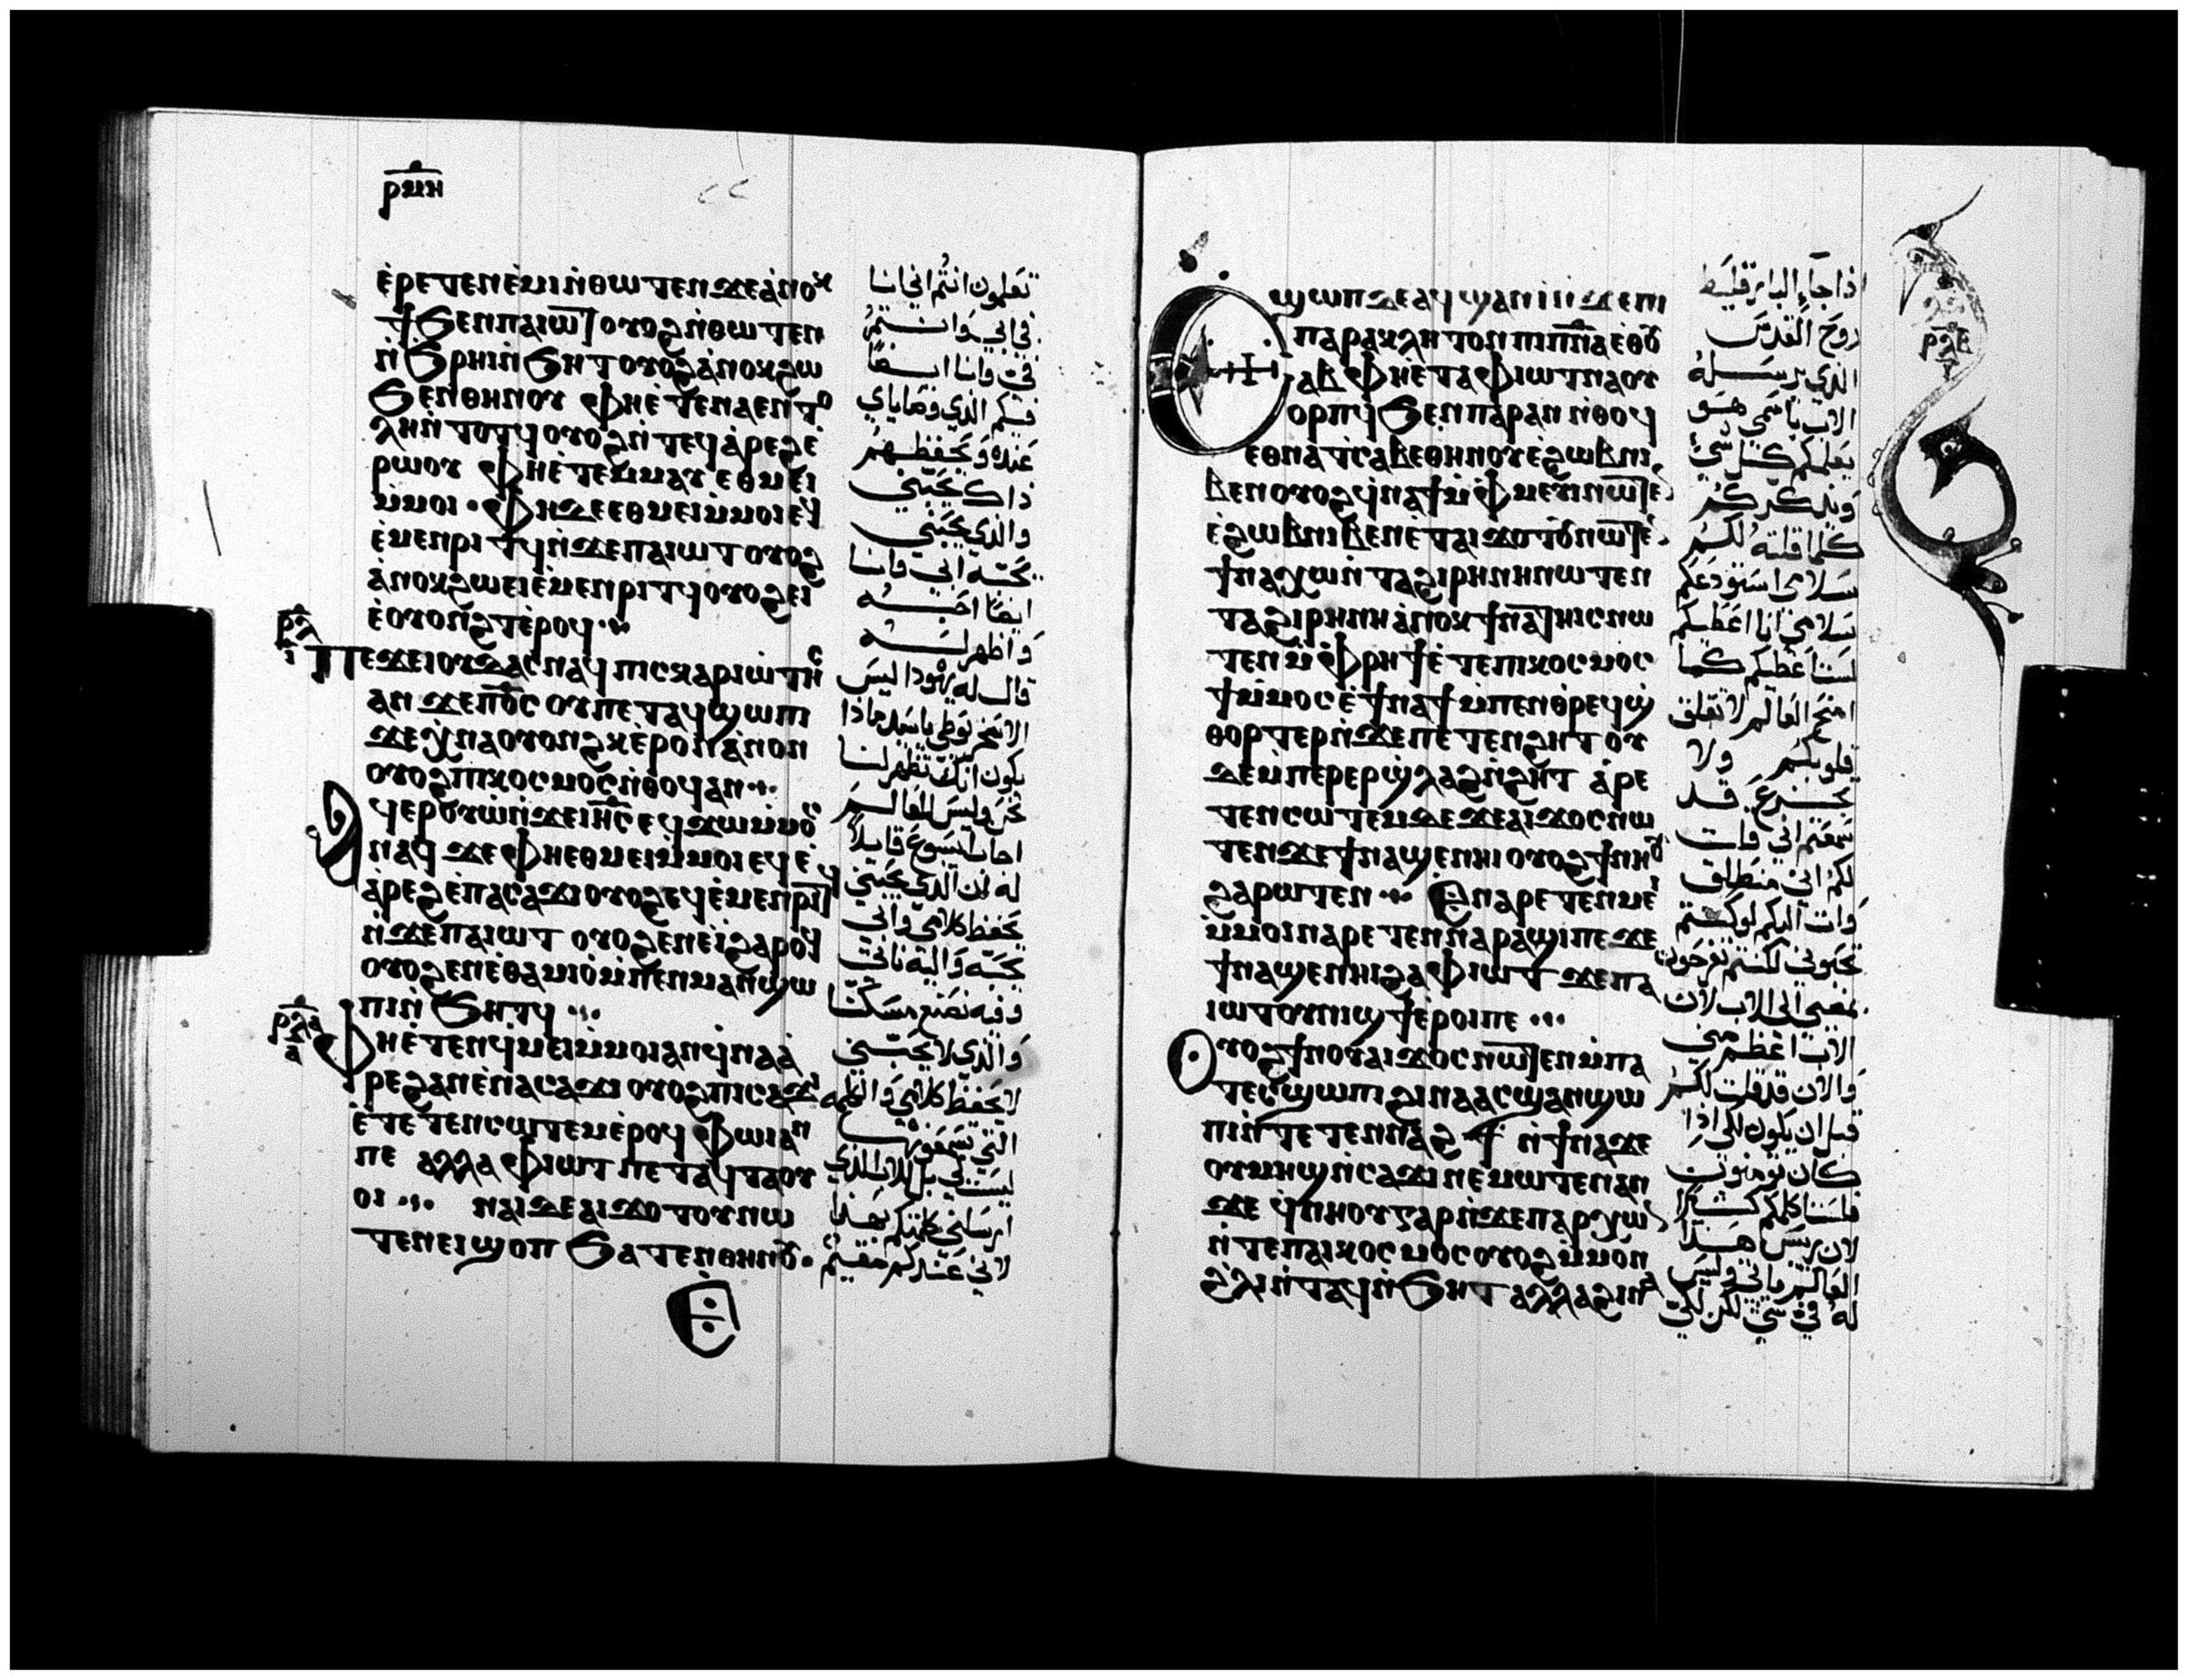 ⲣⲙⲏ
ⲉ̀ⲣⲉⲧⲉⲛⲉ̀ⲙⲓ ⲛ̀ⲑⲱⲧⲉⲛ ϫⲉ ⲁ̀ⲛⲟⲕ
ϯϧⲉⲛ ⲡⲁⲓⲱⲧ ⲟⲩⲟϩ ⲛ̀ⲑⲱⲧⲉⲛ
ⲛ̀ϧⲣⲏⲓ ⲛ̀ϧⲏⲧ ⲟⲩⲟϩ ⲁ̀ⲛⲟⲕ ϩⲱ
ϧⲉⲛ ⲑⲏⲛⲟⲩ ⲫⲏⲉ̀ⲧⲉ ⲛⲁⲉⲛⲧⲟ
ⲗⲏ ⲛ̀ⲧⲟⲧϥ ⲟⲩⲟϩ ⲛ̀ⲧⲉϥⲁ̀ⲣⲉϩ ⲉ̀
ⲣⲱⲟⲩ ⲫⲏⲉ̀ⲧⲉⲙⲙⲁⲩ ⲉⲑⲙⲉⲓ
ⲙ̀ⲙⲟⲓ · ⲫⲏ ϫⲉ ⲉⲑⲙⲉⲓ ⲙ̀ⲙⲟⲓ ⲉϥ
ⲉ̀ⲙⲉⲛⲣⲓⲧϥ ⲛ̀ϫⲉ ⲡⲁⲓⲱⲧ ⲟⲩⲟϩ
ⲁ̀ⲛⲟⲕ ϩⲱ ⲉⲓⲉ̀ⲙⲉⲛⲣⲓⲧϥ ⲟⲩⲟϩ ⲉⲓ
ⲉ̀ⲟⲩⲟⲛϩⲧ ⲉ̀ⲣⲟϥ
ⲣⲗ
ⲓ
ⲡⲉϫⲉ ⲓⲟⲩⲇⲁⲥ ⲛⲁϥ ⲡⲓⲥⲕⲁⲣⲓⲱ̀ⲧⲏⲥ
ⲁⲛ ϫⲉ ⲡⲟ̅ⲥ̅ ⲟⲩ ⲡⲉⲧⲁϥϣⲱⲡⲓ
ϫⲉ ⲭ̀ⲛⲁⲟⲩⲟⲛϩⲕ ⲉ̀ⲣⲟⲛ ⲁ̀ⲛⲟⲛ
ⲟⲩⲟϩ ⲡⲓⲕⲟⲥⲙⲟⲥ ⲛ̀ⲑⲟϥ ⲁⲛ
ϥⲉⲣⲟⲩⲱ̀ ⲛ̀ϫⲉ ⲓⲏ̅ⲥ̅ ⲉϥϫⲱ ⲙ̀ⲙⲟⲥ
ⲛⲁϥ ϫⲉ ⲫⲏⲉⲑⲙⲉⲓ ⲙ̀ⲙⲟⲓ ⲉϥⲉ̀
ⲁ̀ⲣⲉϩ ⲉ̀ⲡⲁⲥⲁϫⲓ ⲟⲩⲟϩ ⲉϥⲉ̀ⲙⲉⲛⲣⲓⲧϥ
ⲛ̀ϫⲉ ⲡⲁⲓⲱⲧ ⲟⲩⲟϩ ⲉⲛⲉ̀ⲓ̀ ϩⲁⲣⲟϥ
ⲟⲩⲟϩ ⲉⲛⲉ̀ⲑⲁⲙⲓⲟ̀ ⲙ̀ⲡⲉⲛⲙⲁⲛ̀ϣⲱ
ⲡⲓ ⲛ̀ϧⲏⲧϥ
ⲣⲗⲁ
ⲁ
ⲫⲏⲉ̀ⲧⲉⲛϥ̀ⲙⲉⲓ ⲙ̀ⲙⲟⲓ ⲁⲛ ϥ̀ⲛⲁⲁ̀
ⲣⲉϩ ⲁⲛ ⲉ̀ⲛⲁⲥⲁϫⲓ ⲟⲩⲟϩ ⲡⲓⲥⲁϫⲓ
ⲉ̀ⲧⲉⲧⲉⲛⲥⲱⲧⲉⲙ ⲉ̀ⲣⲟϥ ⲫⲱⲓ ⲁⲛ
ⲡⲉ ⲁⲗⲗⲁ ⲫⲓⲱⲧ ⲡⲉⲧⲁϥⲧⲁⲟⲩ
ⲟⲓ ⲛⲁⲓ ⲇⲉ ⲁⲓϫⲟⲧⲟⲩ ⲛⲱ
ⲧⲉⲛ ⲉⲓϣⲟⲡ ϧⲁⲧⲉⲛ ⲑⲏⲛⲟⲩ ·
تعلمون انتم اني انا
في ابي وانتم
في وانا ايضا
فيكم الذي وصاياي
عنده ويحفظهم
ذاك يحبني
والذي يحبني
يحبه ابي وانا
ايضا احبه
واظهر له
قال له يهوذا ليس
الاسخريوطي يا سيد ماذا
يكون انك تظهر لنا
نحن وليس للعالم
اجاب يسوع قايلا
له ان الذي يحبني
يحفظ كلامي وابي
يحبه واليه ناتي
وفيه نصنع مسكنا
والذي لا يحبني
لا يحفظ كلامي والكلمه
التي تسمعونها
ليست لي بل للاب الذي
ارسلني كلمتكم بهذا
لاني عندكم مقيم
ϣⲱⲡ ⲇⲉ ⲁϥϣⲁⲛⲓ̀ ⲛ̀ϫⲉ ⲡⲓ
ⲡⲁⲣⲁⲕⲗⲏⲧⲟⲛ ⲡⲓⲡ̅ⲛ̅ⲁ̅ ⲉⲑⲟⲩ
ⲁⲃ ⲫⲏⲉ̀ⲧⲁ ⲫⲓⲱⲧ ⲛⲁⲟⲩ
ⲟⲣⲡϥ ϧⲉⲛ ⲡⲁⲣⲁⲛ ⲛ̀ⲑⲟϥ
ⲉⲑⲛⲁⲧⲥⲁⲃⲉ ⲑⲏⲛⲟⲩ ⲉ̀ϩⲱⲃ ⲛⲓ
ⲃⲉⲛ ⲟⲩⲟϩ ϥ̀ⲛⲁϯⲙ̀ⲫⲙⲉⲩⲓ ⲛⲱⲧⲉⲛ
ⲉ̀ϩⲱⲃ ⲛⲓⲃⲉⲛ ⲉ̀ⲧⲁⲓϫⲟⲧⲟⲩ ⲛⲱⲧⲉⲛ
ϯⲛⲁⲭⲱ ⲛ̀ⲧⲁϩⲓⲣⲏⲛⲏ ⲛⲱⲧⲉⲛ
ⲧⲁϩⲓⲣⲏⲛⲏ ⲁ̀ⲛⲟⲕ ϯⲛⲁⲧⲏⲓⲥ ⲛⲱ
ⲧⲉⲛ ⲙ̀ⲫⲣⲏϯ ⲉ̀ⲧⲉ ⲡⲓⲕⲟⲥⲙⲟⲥ
ϯⲙ̀ⲙⲟⲥ ⲉ̀ϯⲛⲁϯ ⲙ̀ⲡⲉⲛⲑ̀ⲣⲉϥϣ̀
ⲑⲟⲣⲧⲉⲣ ⲛ̀ϫⲉ ⲡⲉⲧⲉⲛϩⲏⲧ ⲟⲩ
ⲇⲉ ⲙ̀ⲡⲉⲣⲉⲣϣ̀ⲗⲁϩ ⲛ̀ϩⲏⲧ ⲁ̀ⲣⲉ
ⲧⲉⲛⲥⲱⲧⲉⲙ ϫⲉ ϫⲉ ⲁⲓϫⲟⲥ ⲛⲱ
ⲧⲉⲛ ϫⲉ ϯⲛⲁϣⲉ ⲛⲏⲓ ⲟⲩⲟϩ ϯⲛⲏⲟⲩ
ϩⲁⲣⲱⲧⲉⲛ ⲉⲛⲁⲣⲉⲧⲉⲛⲙⲉⲓ
ⲙ̀ⲙⲟⲓ ⲛⲁⲣⲉⲧⲉⲛⲛⲁⲣⲁϣⲓ ⲡⲉ ϫⲉ
ϯⲛⲁϣⲉ ⲛⲏⲓ ϩⲁ ⲫⲓⲱⲧ ϫⲉ ⲡⲁ
ⲓⲱⲧ ⲟⲩⲛⲓϣϯ ⲉ̀ⲣⲟⲓ ⲡⲉ
ⲟⲩⲟϩ ϯⲛⲟⲩ ⲁⲓϫⲟⲥ ⲛⲱⲧⲉⲛ ⲙ̀ⲡⲁ
ⲧⲉⲥϣⲱⲡⲓ ϩⲓⲛⲁ ⲁⲥϣⲁⲛϣⲱ
ⲡⲓ ⲛ̀ⲧⲉⲧⲉⲛⲛⲁϩϯ ⲛ̀ϯⲛⲁϫⲉ
ⲟⲩⲙⲏϣ ⲛ̀ⲥⲁϫⲓ ⲛⲉⲙⲱⲧⲉⲛ ⲁⲛ
ϫⲉ ϥ̀ⲛⲏⲟⲩ ⲅⲁⲣ ⲛ̀ϫⲉ ⲡⲁⲣⲭⲱⲛ
ⲛ̀ⲧⲉ ⲡⲁⲓⲕⲟⲥⲙⲟⲥ ⲟⲩⲟϩ ⲙ̀ⲙⲟⲛ
ϩ̀ⲗⲓ ⲛ̀ⲧⲁϥ ⲛ̀ϧⲏⲧ ⲁⲗⲗⲁ ϩⲓⲛⲁ
ⲣⲗⲃ
ⲓ
اذا جاء البارقليط
روح القدس
الذي يرسله
الاب باسمي هو
يعلمكم كل شي
ويذكركم
كلما قلته لكم
سلامي استودعكم
سلامي انا اعطيكم
لست اعطيكم كما
امنح العالم لا تقلق
قلوبكم ولا
تجزع قد
سمعتم اني قلت
لكم اني منطلق
وات اليكم لو كنتم
تحبوني لكنتم تفرحون
بمضيي الى الاب لان
الاب اعظم مني
والان قد قلت لكم
قبل ان يكون لكي اذا
كان تومنون
فلست اكلمكم كثيرا
لان ريس هذا
العالم ياتي وليس
له في شي لكن لكي